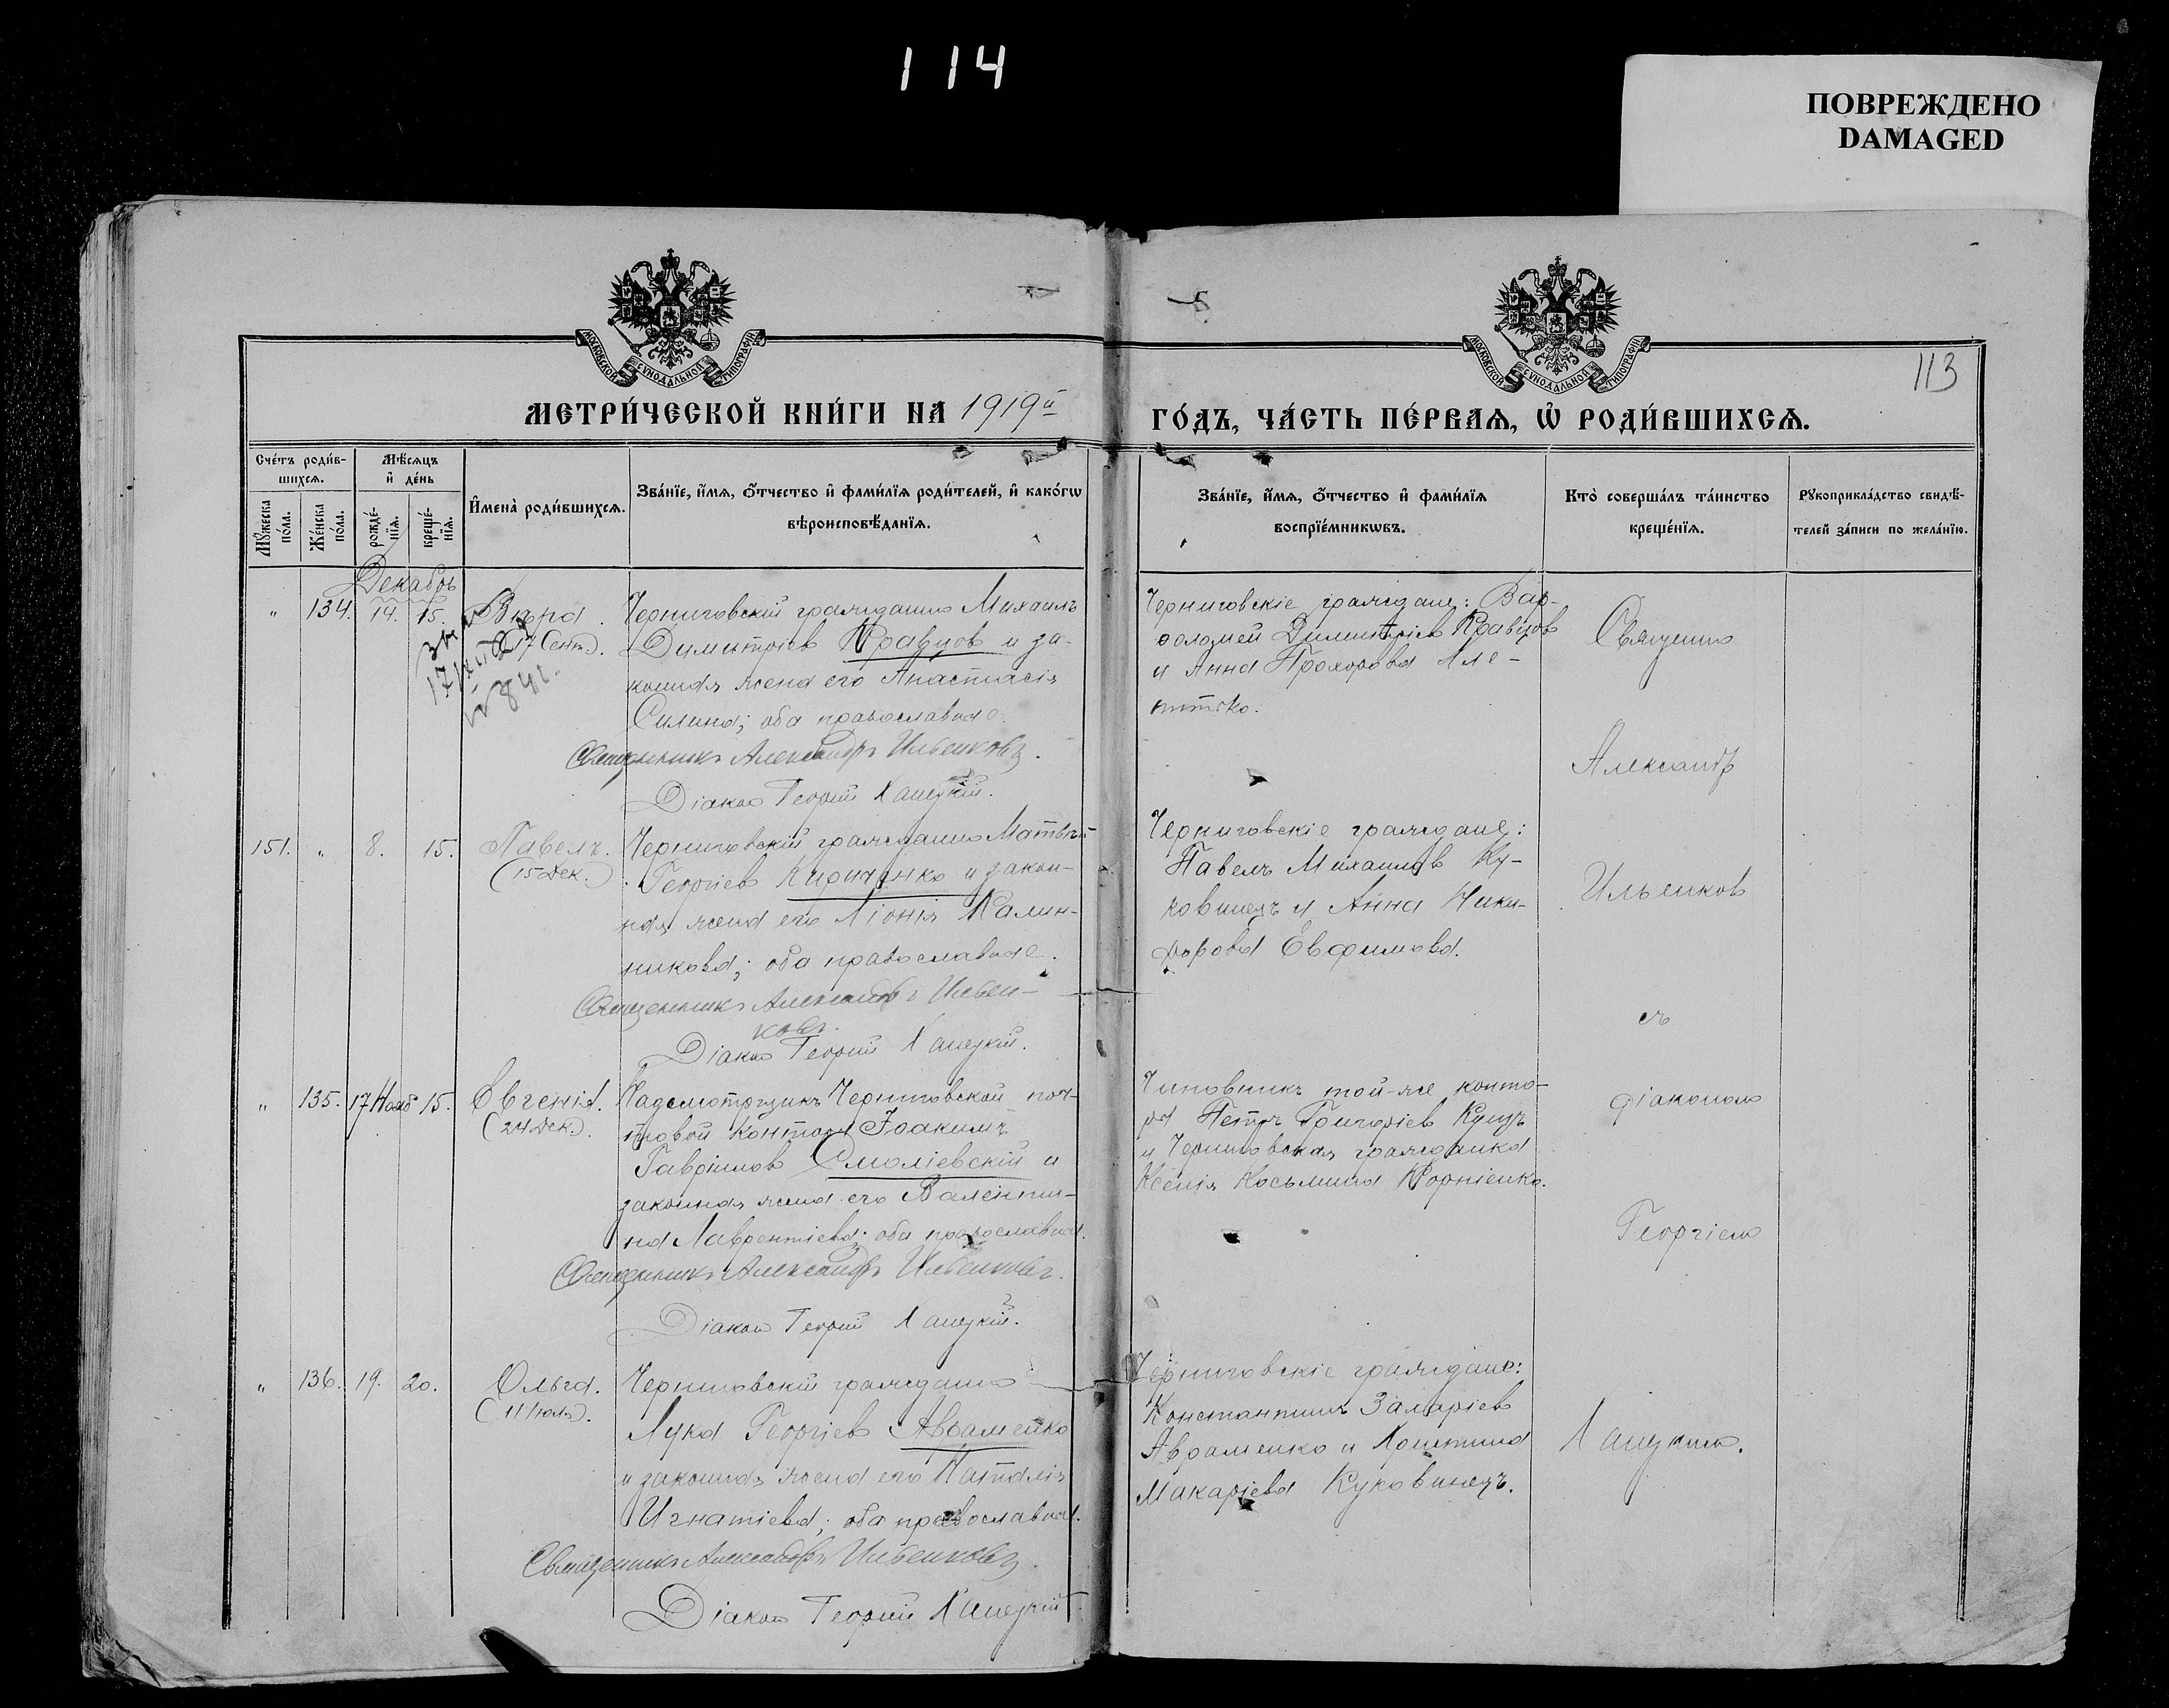 114
ПОВРЕЖДЕНО
DAMAGED
МОСКОВСКОЙ СѴНОДАЛЬНОЙ ТИПОГРАФІИ
МОСКОВСКОЙ СѴНОДАЛЬНОЙ ТИПОГРАФІИ
113
МЕТРИ́ЧЕСКОЙ КНИ́ГИ НА 1919й ГО́ДЪ, ЧА́СТЬ ПЕ́РВАЯ, Ѡ РОДИ́ВШИХСѦ.
Сче́тъ роди́в-
шихсѧ.
Мꙋ́жеска
по́ла.
Же́нска
по́ла.
Мѣ́сѧцъ
и҆ де́нь
рожде́-
нїѧ.
креще́-
нїѧ.
И҆мена̀ роди́вшихсѧ.
Зва́нїе, и҆́мѧ, ѻ҆́тчество и҆ фами́лїѧ роди́телей, и҆ како́гѡ
вѣроисповѣ́данїѧ.
Зва́нїе, и҆́мѧ, ѻ҆́тчество и҆ фами́лїѧ
воспрїе́мникѡвъ.
Кто̀ соверша́лъ та́инство
креще́нїѧ.
Рꙋкоприкла́дство свидѣ́-
телей за́писи по жела́нїю.
Декабрь
" 134. 14. 15. Вѣра.
(17 Сент.).
Черниговскій гражданинъ Михаилъ
Димитріевъ Кравцов и за-
конная жена его Анастасія
Силина; оба православные.
Священникъ Александръ Ильенковъ.
Діаконъ Георгій Лапецкій.
Черниговскіе граждане: Вар-
ѳоломей Димитріевъ Кравцов
и Анна Прохорова
151. " 8. 15. Павелъ.
(15 Дек.)
Черниговскій гражданинъ Матвѣй
Георгіевъ Кириченко и закон-
ная жена его Калин-
никова; оба православные.
Священникъ Александръ Ильен-
ковъ.
Діаконъ Георгій Лапецкій.
Черниговскіе граждане:
Павелъ Михаиловъ Ку-
ковинецъ и Анна Ники-
форова Евфимова.
" 135. 17 Нояб 15. Евгенія.
(24 Дек.).
Надсмотрщикъ Черниговской поч-
товой конторы Іоакимъ
Гавріиловъ Смоліевскій и
законная жена его Валенти-
на Лаврентіева; оба православные.
Священникъ Александръ Ильенковъ.
Діаконъ Георгій Лапецкій.
Чиновникъ той-же конто-
ры Петръ Григоріевъ Куцъ
и Черниговская гражданка
Ксенія Косьмина Корніенко.
" 136. 19. 20. Ольга.
(11 Іюля).
Черниговскій гражданинъ
Лука Георгіевъ Авраменко
и законная жена его Наталія
Игнатіева; оба православные.
Священникъ Александръ Ильенковъ.
Діаконъ Георгій Лапецкій.
Черниговскіе граждане:
Константинъ
Авраменко и Христина
Макаріева Куковинецъ.
Священникъ
Александръ
Ильенков
съ
діакономъ
Георгіемъ
Лапецкимъ.